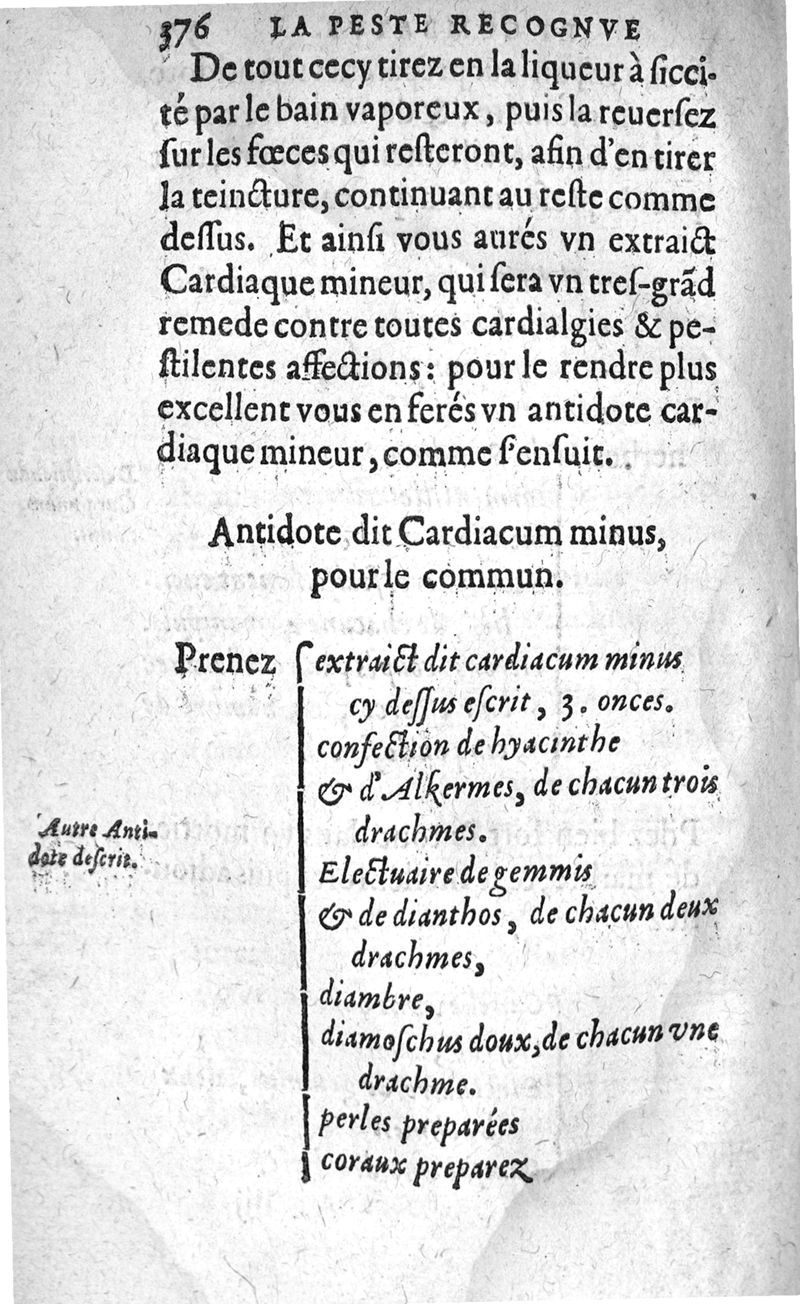 376 LA PESTE RECOGNVE
De tout cecy tirez en la liqueur à ſicci-
té par le bain vaporeux, puis la reuerſez
ſur les fœces qui reſteront, afin d'en tirer
la teincture, continuant au reſte comme
deſſus. Et ainſi vous aurés vn extraict
Cardiaque mineur, qui ſera vn treſ-grãd
remede contre toutes cardialgies & pe-
ſtilentes affections: pour le rendre plus
excellent vous en ferés vn antidote car-
diaque mineur, comme ſ'enſuit.
Antidote dit Cardiacum minus,
pour le commun.
Prenez extraict dit cardiacum minus
cy deſſus eſcrit, 3. onces.
confection de hyacinthe
& d'Alkermes, de chacun trois
drachmes.
Autre Anti-
dote deſcrit.
Electuaire de gemmis
& de dianthos, de chacun deux
drachmes,
diambre,
diamoſchus doux, de chacun vne
drachme.
perles preparées
coraux preparez